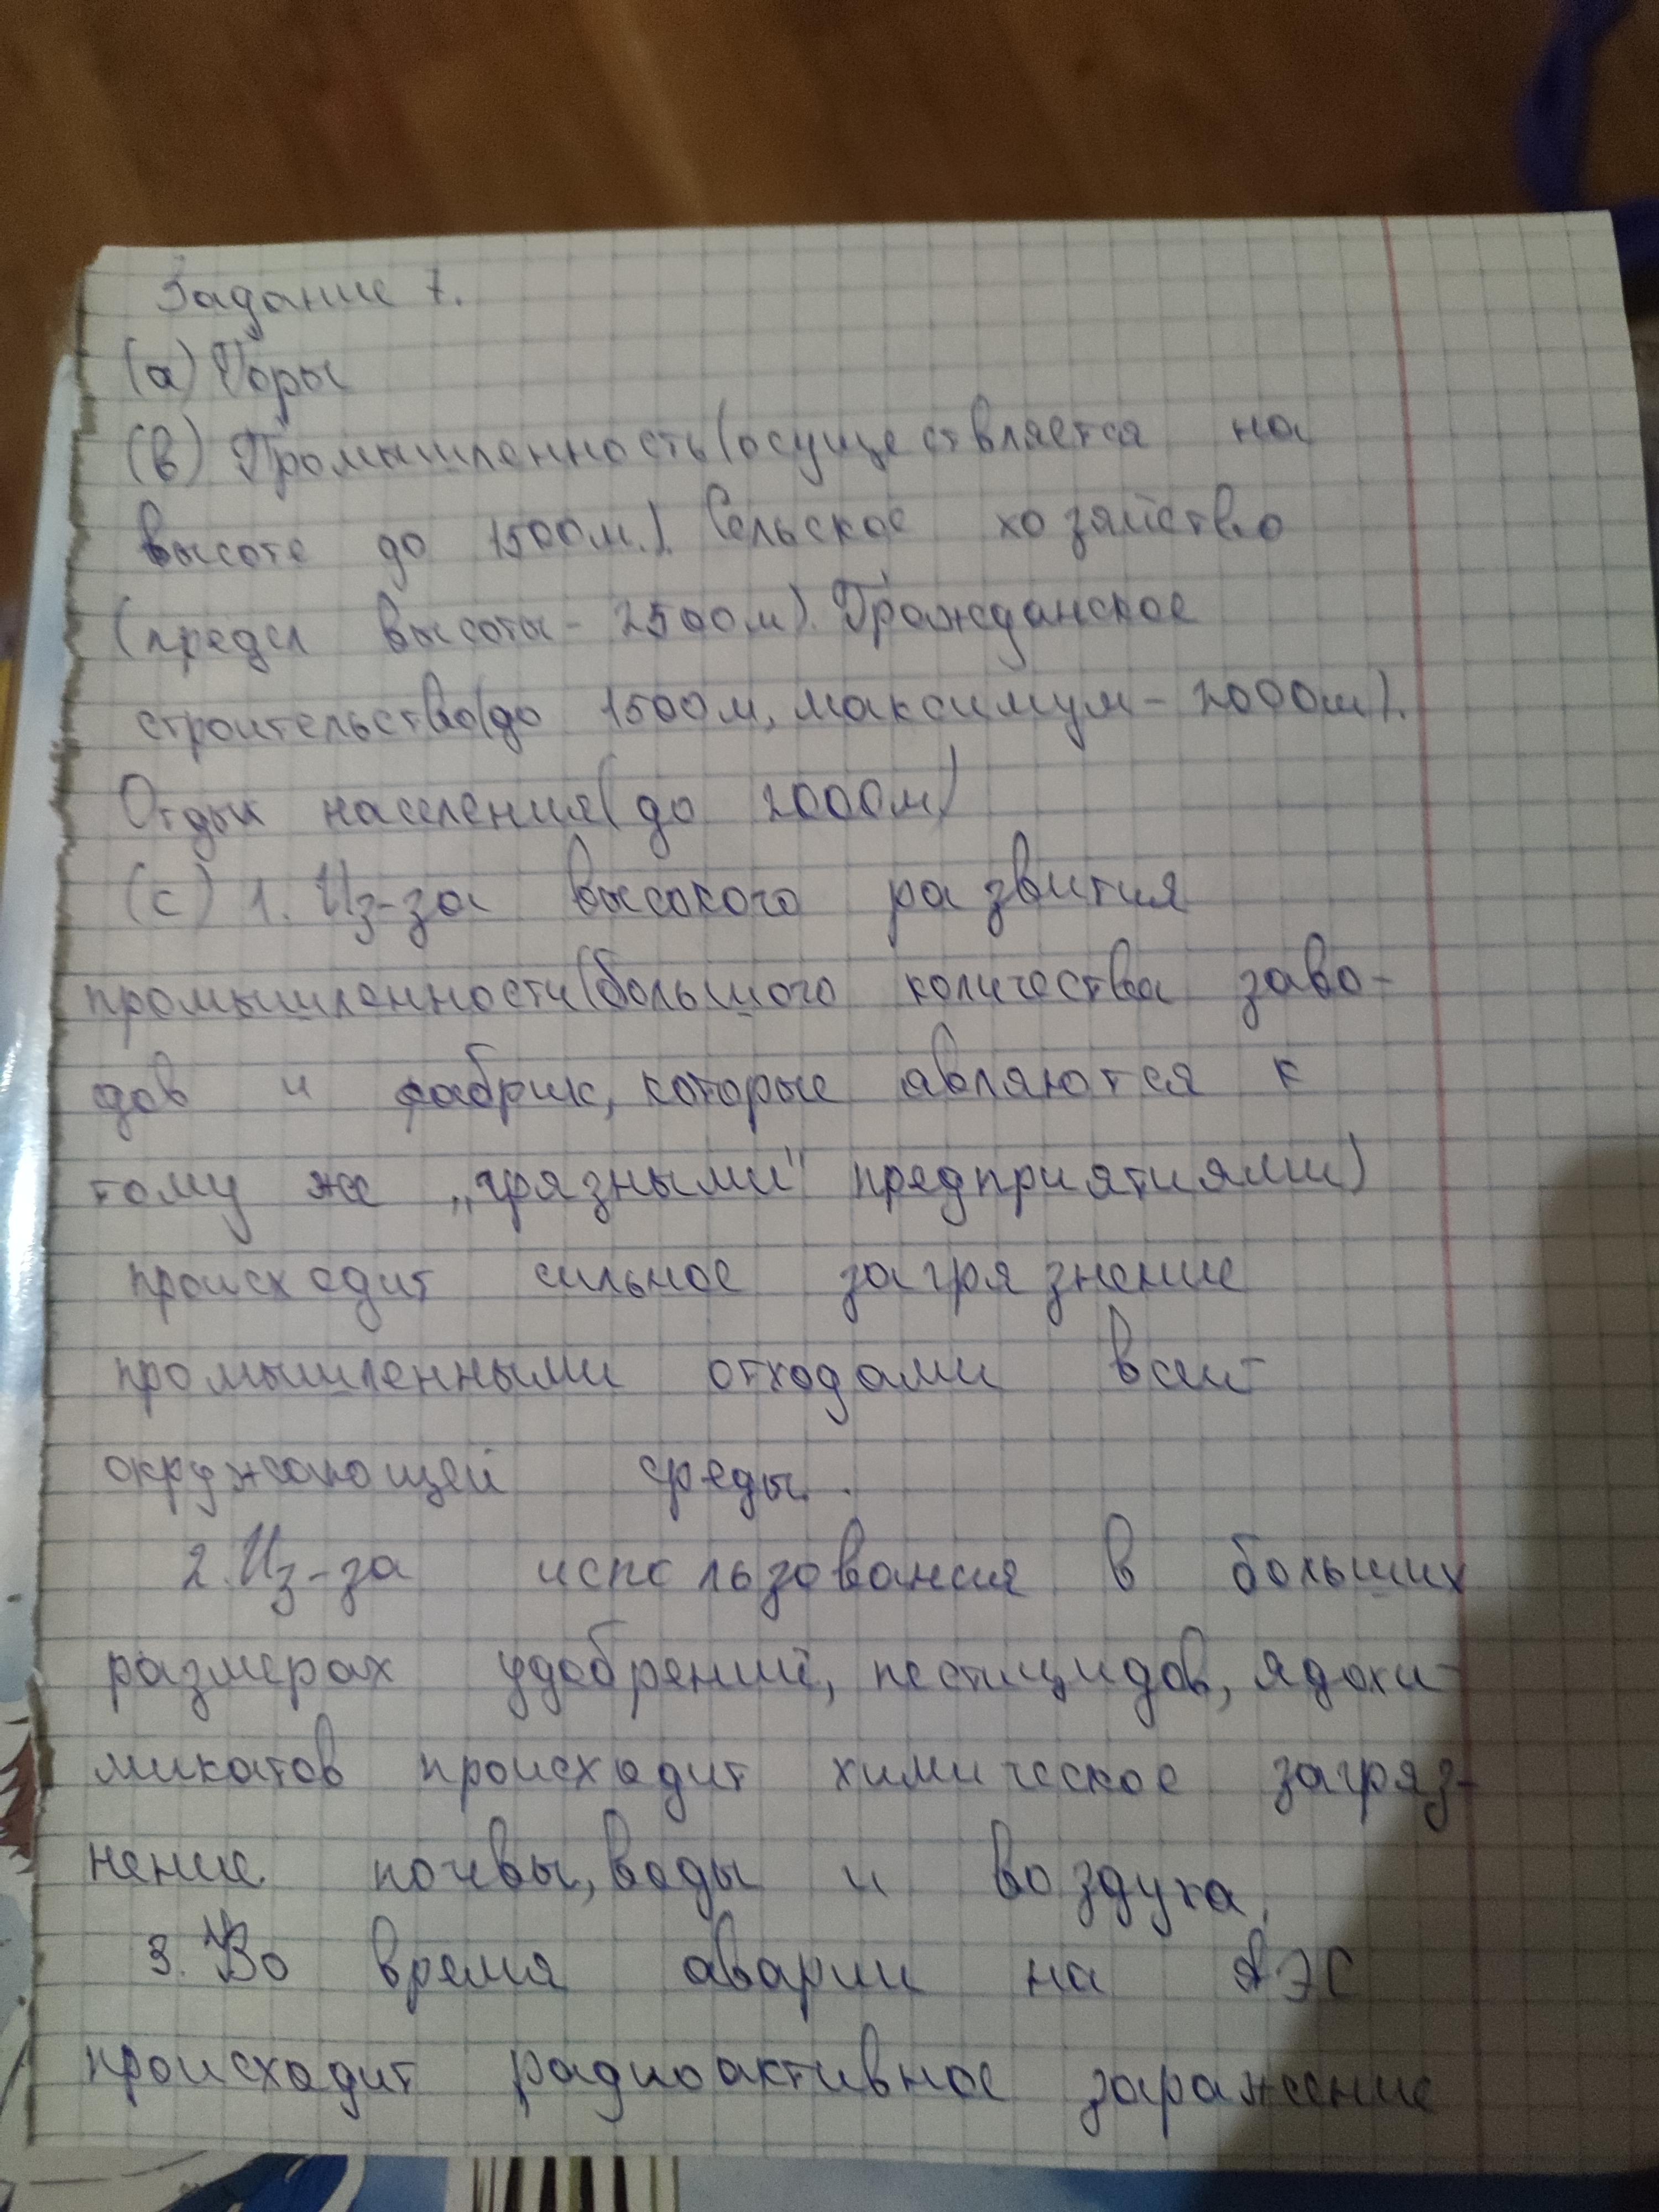 Задание 7.
(а) Горы
(в) Промышленность(осуществляется на
высоте до 1500м.). Сельское хозяйство
(предел высоты - 2500м). Гражданское
строительство(до 1500м, максимум - 2000м).
Отдых населения(до 2000м)
(с) 1. Из-за высокого развития
промышленности(большого количества заво-
дов и фабрик, которые являются к
тому же „грязными" предприятиями)
происходит сильное загрязнение
промышленными отходами всей
окружающей среды.
2. Из-за использования в больших
размерах удобрений, пестицидов, ядохи-
микатов происходит химическое загряз-
нение почвы, воды и воздуха.
3. Во время аварии на АЭС
происходит радиоактивное заражение